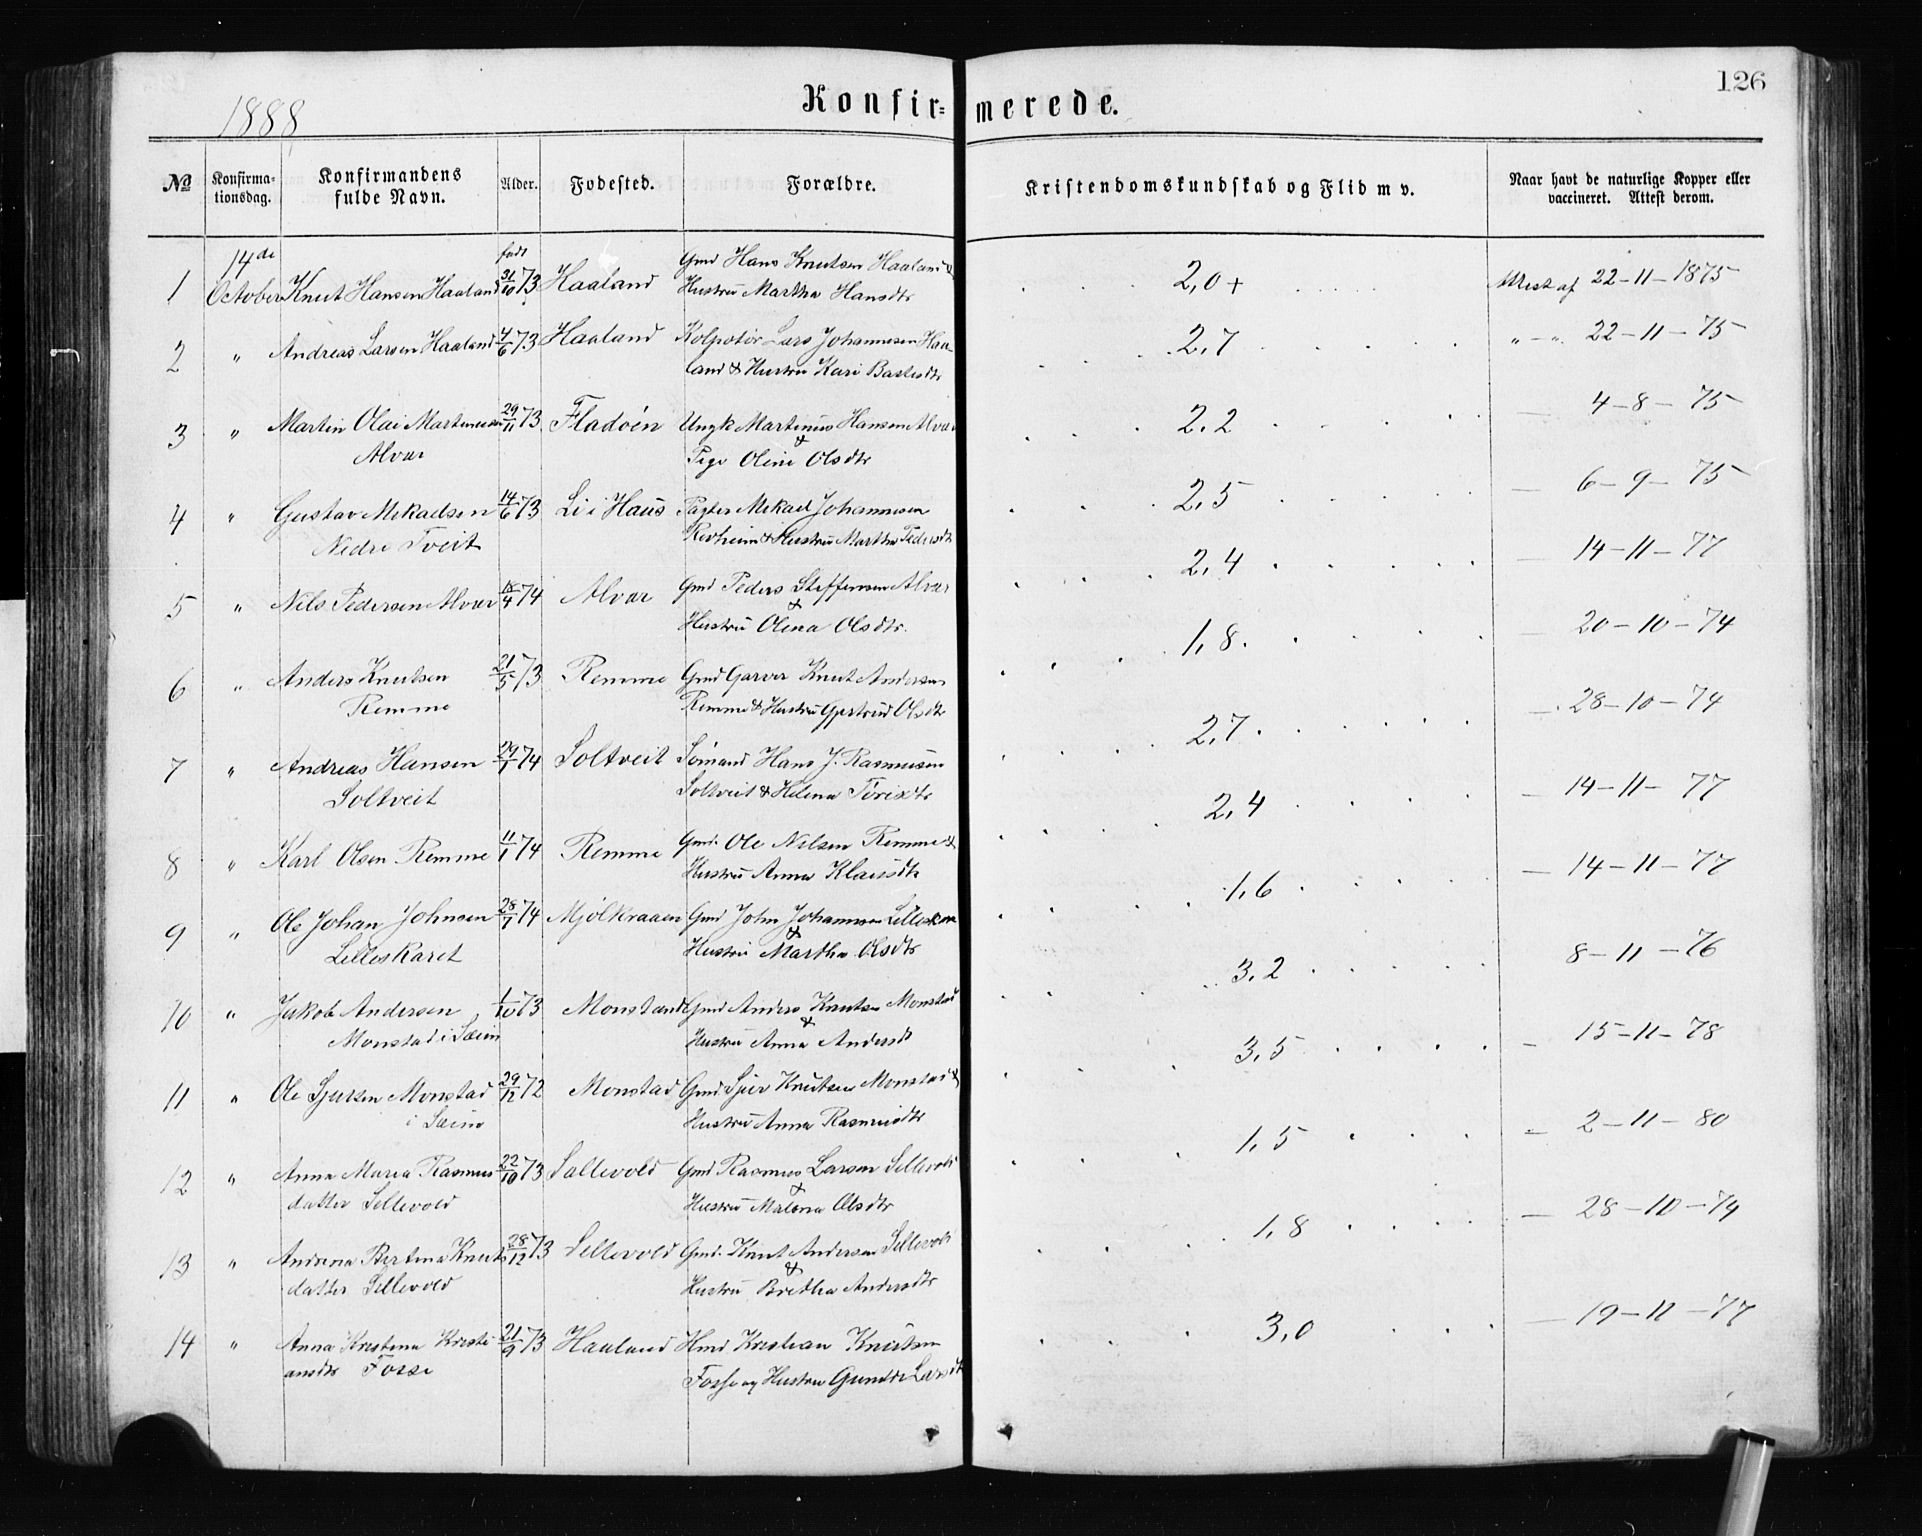 126
1888
Konfirmerede.
No
Konfirma-
tionsdag.
Konfirmandens
fulde Navn.
Alder.
Fødested.
Forældre.
Kristendomskundskab og Flid m v.
Naar havt de naturlige Kopper eller
vaccineret. Attest derom.
14de født Gmd Hans Knutsen Haaland &
1 October Knut Hansen Haaland 31/10 73 Haaland Hustru Martha Hansdtr 2,0+ Attest af 22-11-1875
2 " Andreas Larsen Haaland 4/6 73 Haaland Kolpotør Lars Johannesen Haa- 2,7 " - " 22-11-75
land & Hustru Kari
3 " Martin Olai Martinusen 29/11 73 Fladøen Ungk Martinus Hansen Alvær 2.2 — 4-8-75
Alvær &
Pige Oline Olsdtr
4 " Gustav Mikaelsen 14/6 73 Li i Haus Pagter Mikael Johannesen 2,5 — 6-9-75
Nedre Tveit & Hustru Martha Pedersdtr
5 " Nils Pedersen Alvær 18/4 74 Alvær Gmd Peders Steffensen Alvær 2,4 — 14-11-77
&
Hustru Olena Olsdtr.
6 " Anders Knutsen 21/5 73 Remme Gmd Garver Knut Andersen 1,8 — 20-10-74
Remme Remme & Hustru Gjertrud Olsdtr
7 " Andreas Hansen 29/1 74 Soltveit Sømand Hans J. Rasmusen 2,7 — 28-10-74
Soltveit Soltveit & Helena
8 " Karl Olsen Remme 11/1 74 Remme Gmd. Ole Nilsen Remme & 2,4 — 14-11-77
Hustru Anna Klausdtr
9 " Ole Johan Johnsen 28/7 74 Mjølkraaen Gmd John Johannesen 1,6 — 14-11-77
Lilleskaret &
Hustru Martha Olsdtr
10 " Jakob Andersen 1/10 73 Monstad Gmd Anders Knutsen Monstad 3,2 8-11-76
Monstad i Sæim &
Hustru Anna Andersdt
11 " Ole Sjursen Monstad 29/12 72 Monstad Gmd Sjur Knutsen Monstad & 3,5 — 15-11-78
i Sæim Hustru Anna Rasmusdtr
12 " Anna Maria Rasmus 22/10 73 Sellevold Gmd Rasmus Larsen Sellevold 1,5 — 2-11-80
datter Sellevold &
Hustru Malena Olsdtr
13 " Bertina Knuts 28/12 73 Sellevold Gmd. Knut Andersen Sellevold 1,8 — 28-10-74
datter Sellevold &
Hustru Brethe Andersdtr
14 " Anna Kristina Kristi 21/9 73 Haaland Hmd Kristian Knutsen 3,0 — 19-11-77
ansdtr Fosse Fosse og Hustru Larsdt